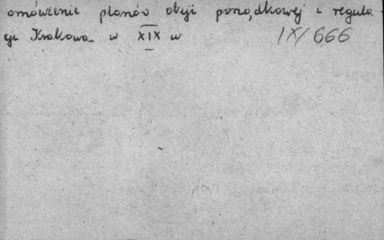 omówienie planów akcji porządkowej i regula
cji Krakowa w XIX w
IX/666